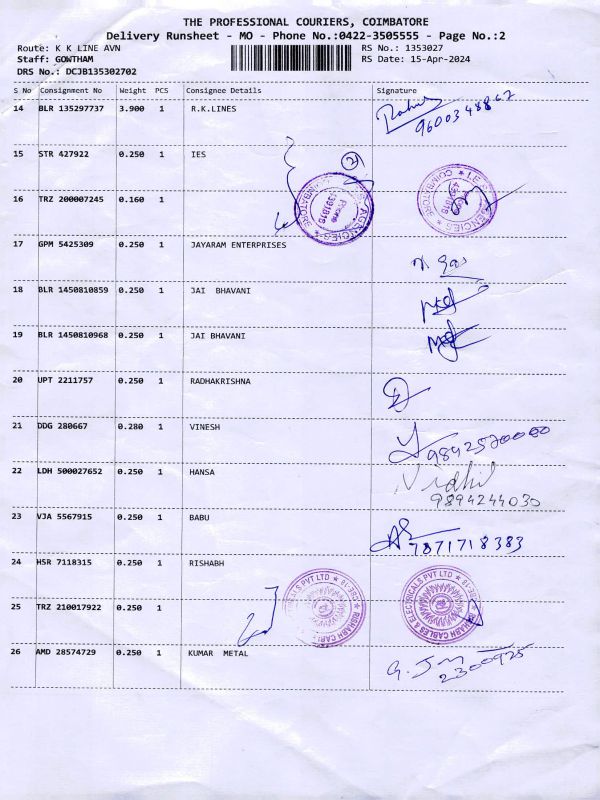 THE PROFESSIONAL COURIERS, COIMBATORE
Delivery Runsheet - MO - Phone No.:0422-3505555 - Page No.:2
Route: K K LINE AVN RS No.: 1353027
Staff: GOWTHAM RS Date: 15-Apr-2024
DRS No.: DCJB135302702
S No Consignment No Weight PCS Consignee Details Signature
14 BLR 135297737 3.900 1 R.K.LINES
9600348867
15 STR 427922 0.250 1 IES
16 TRZ 200007245 0.160 1
17 GPM 5425309 0.250 1 JAYARAM ENTERPRISES
18 BLR 1450810859 0.250 1 JAI BHAVANI
19 BLR 1450810968 0.250 1 JAI BHAVANI
20 UPT 2211757 0.250 1 RADHAKRISHNA
21 DDG 280667 0.280 1 VINESH
9842570000
22 LDH 500027652 0.250 1 HANSA
Nidhil
9894244030
23 VJA 5567915 0.250 1 BABU
7871718383
24 HSR 7118315 0.250 1 RISHABH
RISHABH CABLES & ELECTRICALS PVT LTD
25 TRZ 210017922 0.250 1
26 AMD 28574729 0.250 1 KUMAR METAL
2300925